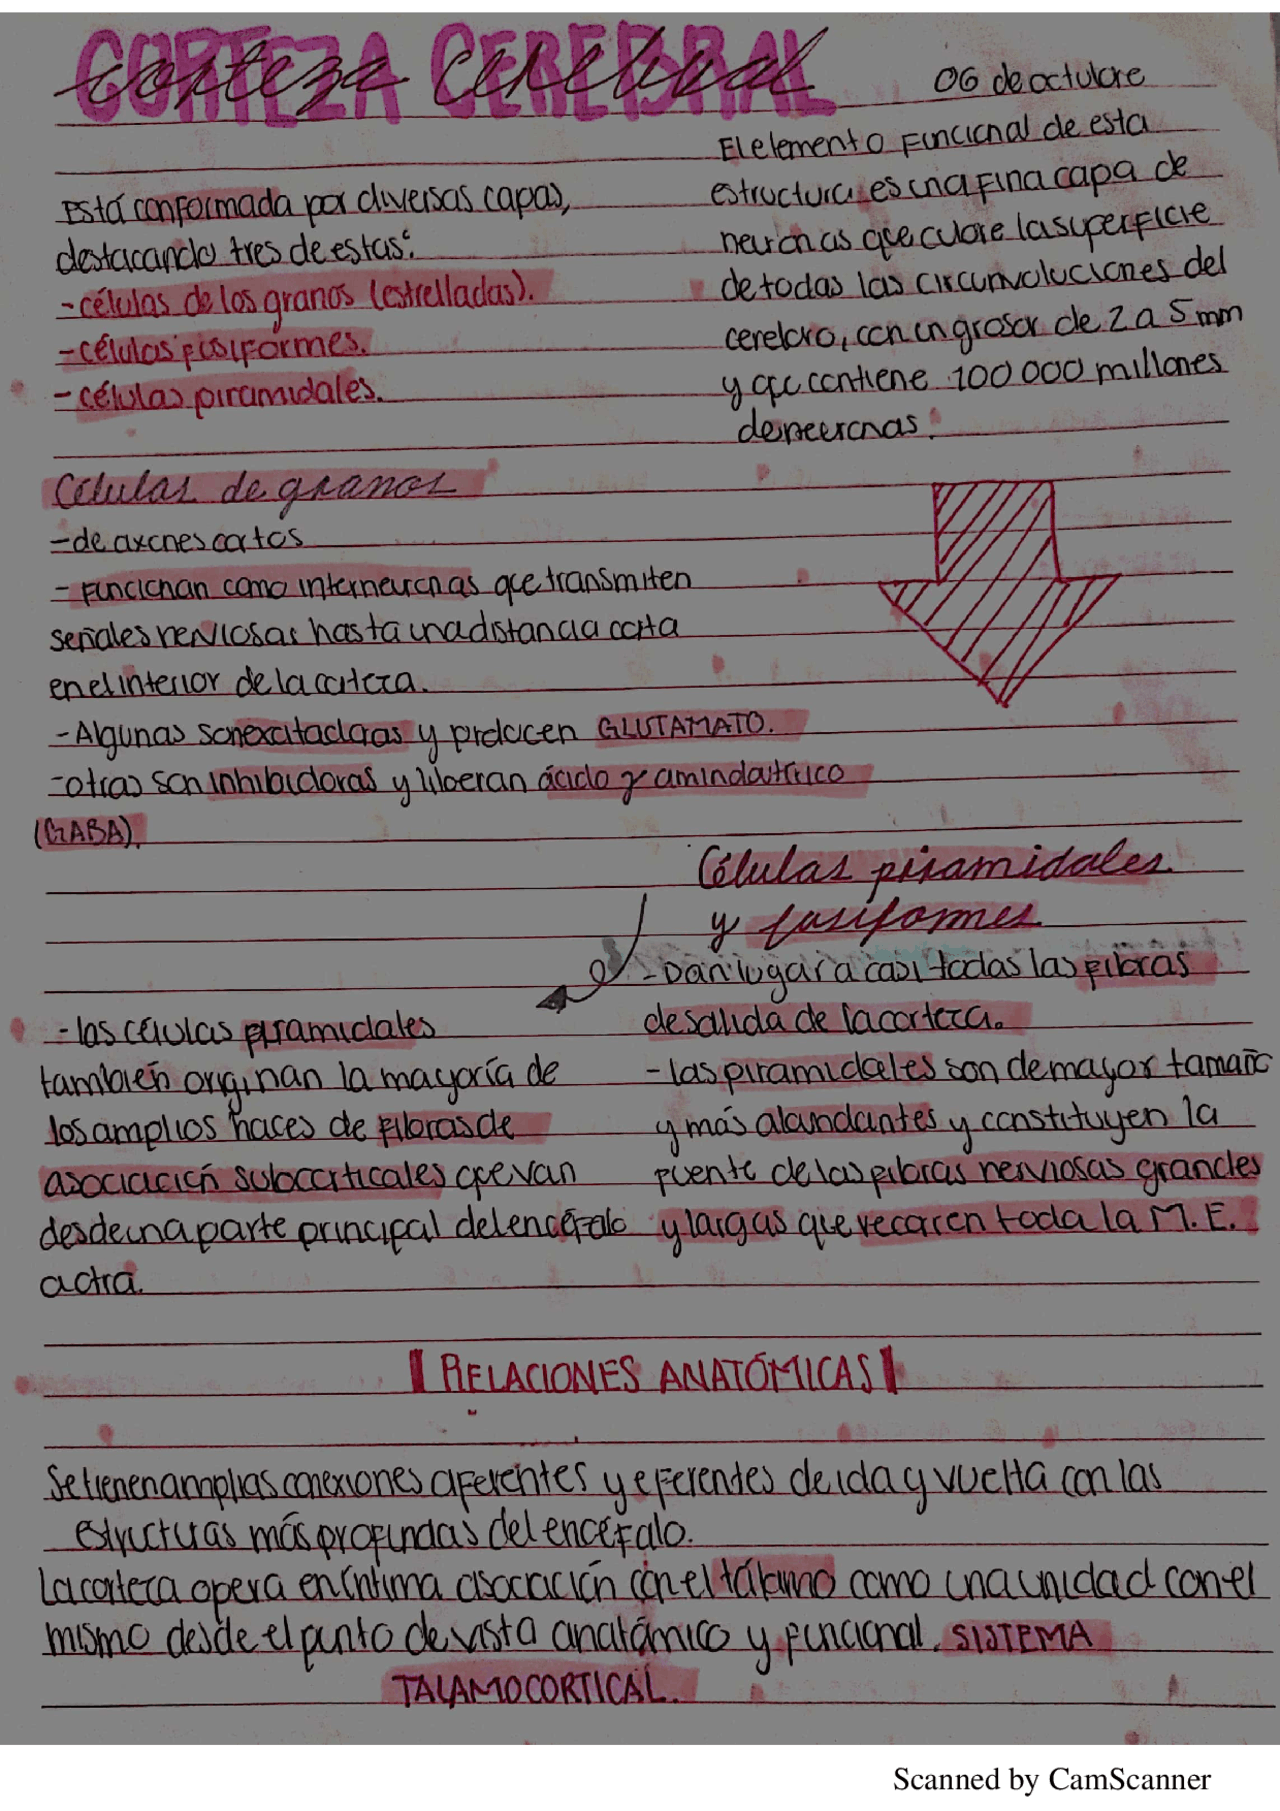 CORTEZA CEREBRAL
corteza cerebral
06 de octubre
Está conformada por diversas capas,
destacando tres de estas:
- células de los granos (estrelladas).
- células fusiformes.
- células piramidales.
El elemento funcional de esta
estructura es una fina capa de
neuronas que cubre la superficie
de todas las circunvoluciones del
cerebro, con un grosor de 2 a 5 mm
y que contiene 100 000 millones
de neuronas.
Células de granos
- de axones cortos
- funcionan como interneuronas que transmiten
señales nerviosas hasta una distancia corta
en el interior de la corteza.
- Algunas son excitadoras y producen GLUTAMATO.
- otras son inhibidoras y liberan ácido γ aminobutírico
(GABA).
Células piramidales
y fusiformes
- Dan lugar a casi todas las fibras
de salida de la corteza.
- las piramidales son de mayor tamaño
y más abundantes y constituyen la
fuente de las fibras nerviosas grandes
y largas que recorren toda la M.E.
- las células piramidales
también originan la mayoría de
los amplios haces de fibras de
asociación subcorticales que van
desde una parte principal del encéfalo
a otra.
RELACIONES ANATÓMICAS
Se tienen amplias conexiones aferentes y eferentes de ida y vuelta con las
estructuras más profundas del encéfalo.
La corteza opera en íntima asociación con el tálamo como una unidad con el
mismo desde el punto de vista anatómico y funcional. SISTEMA
TALAMOCORTICAL.
Scanned by CamScanner